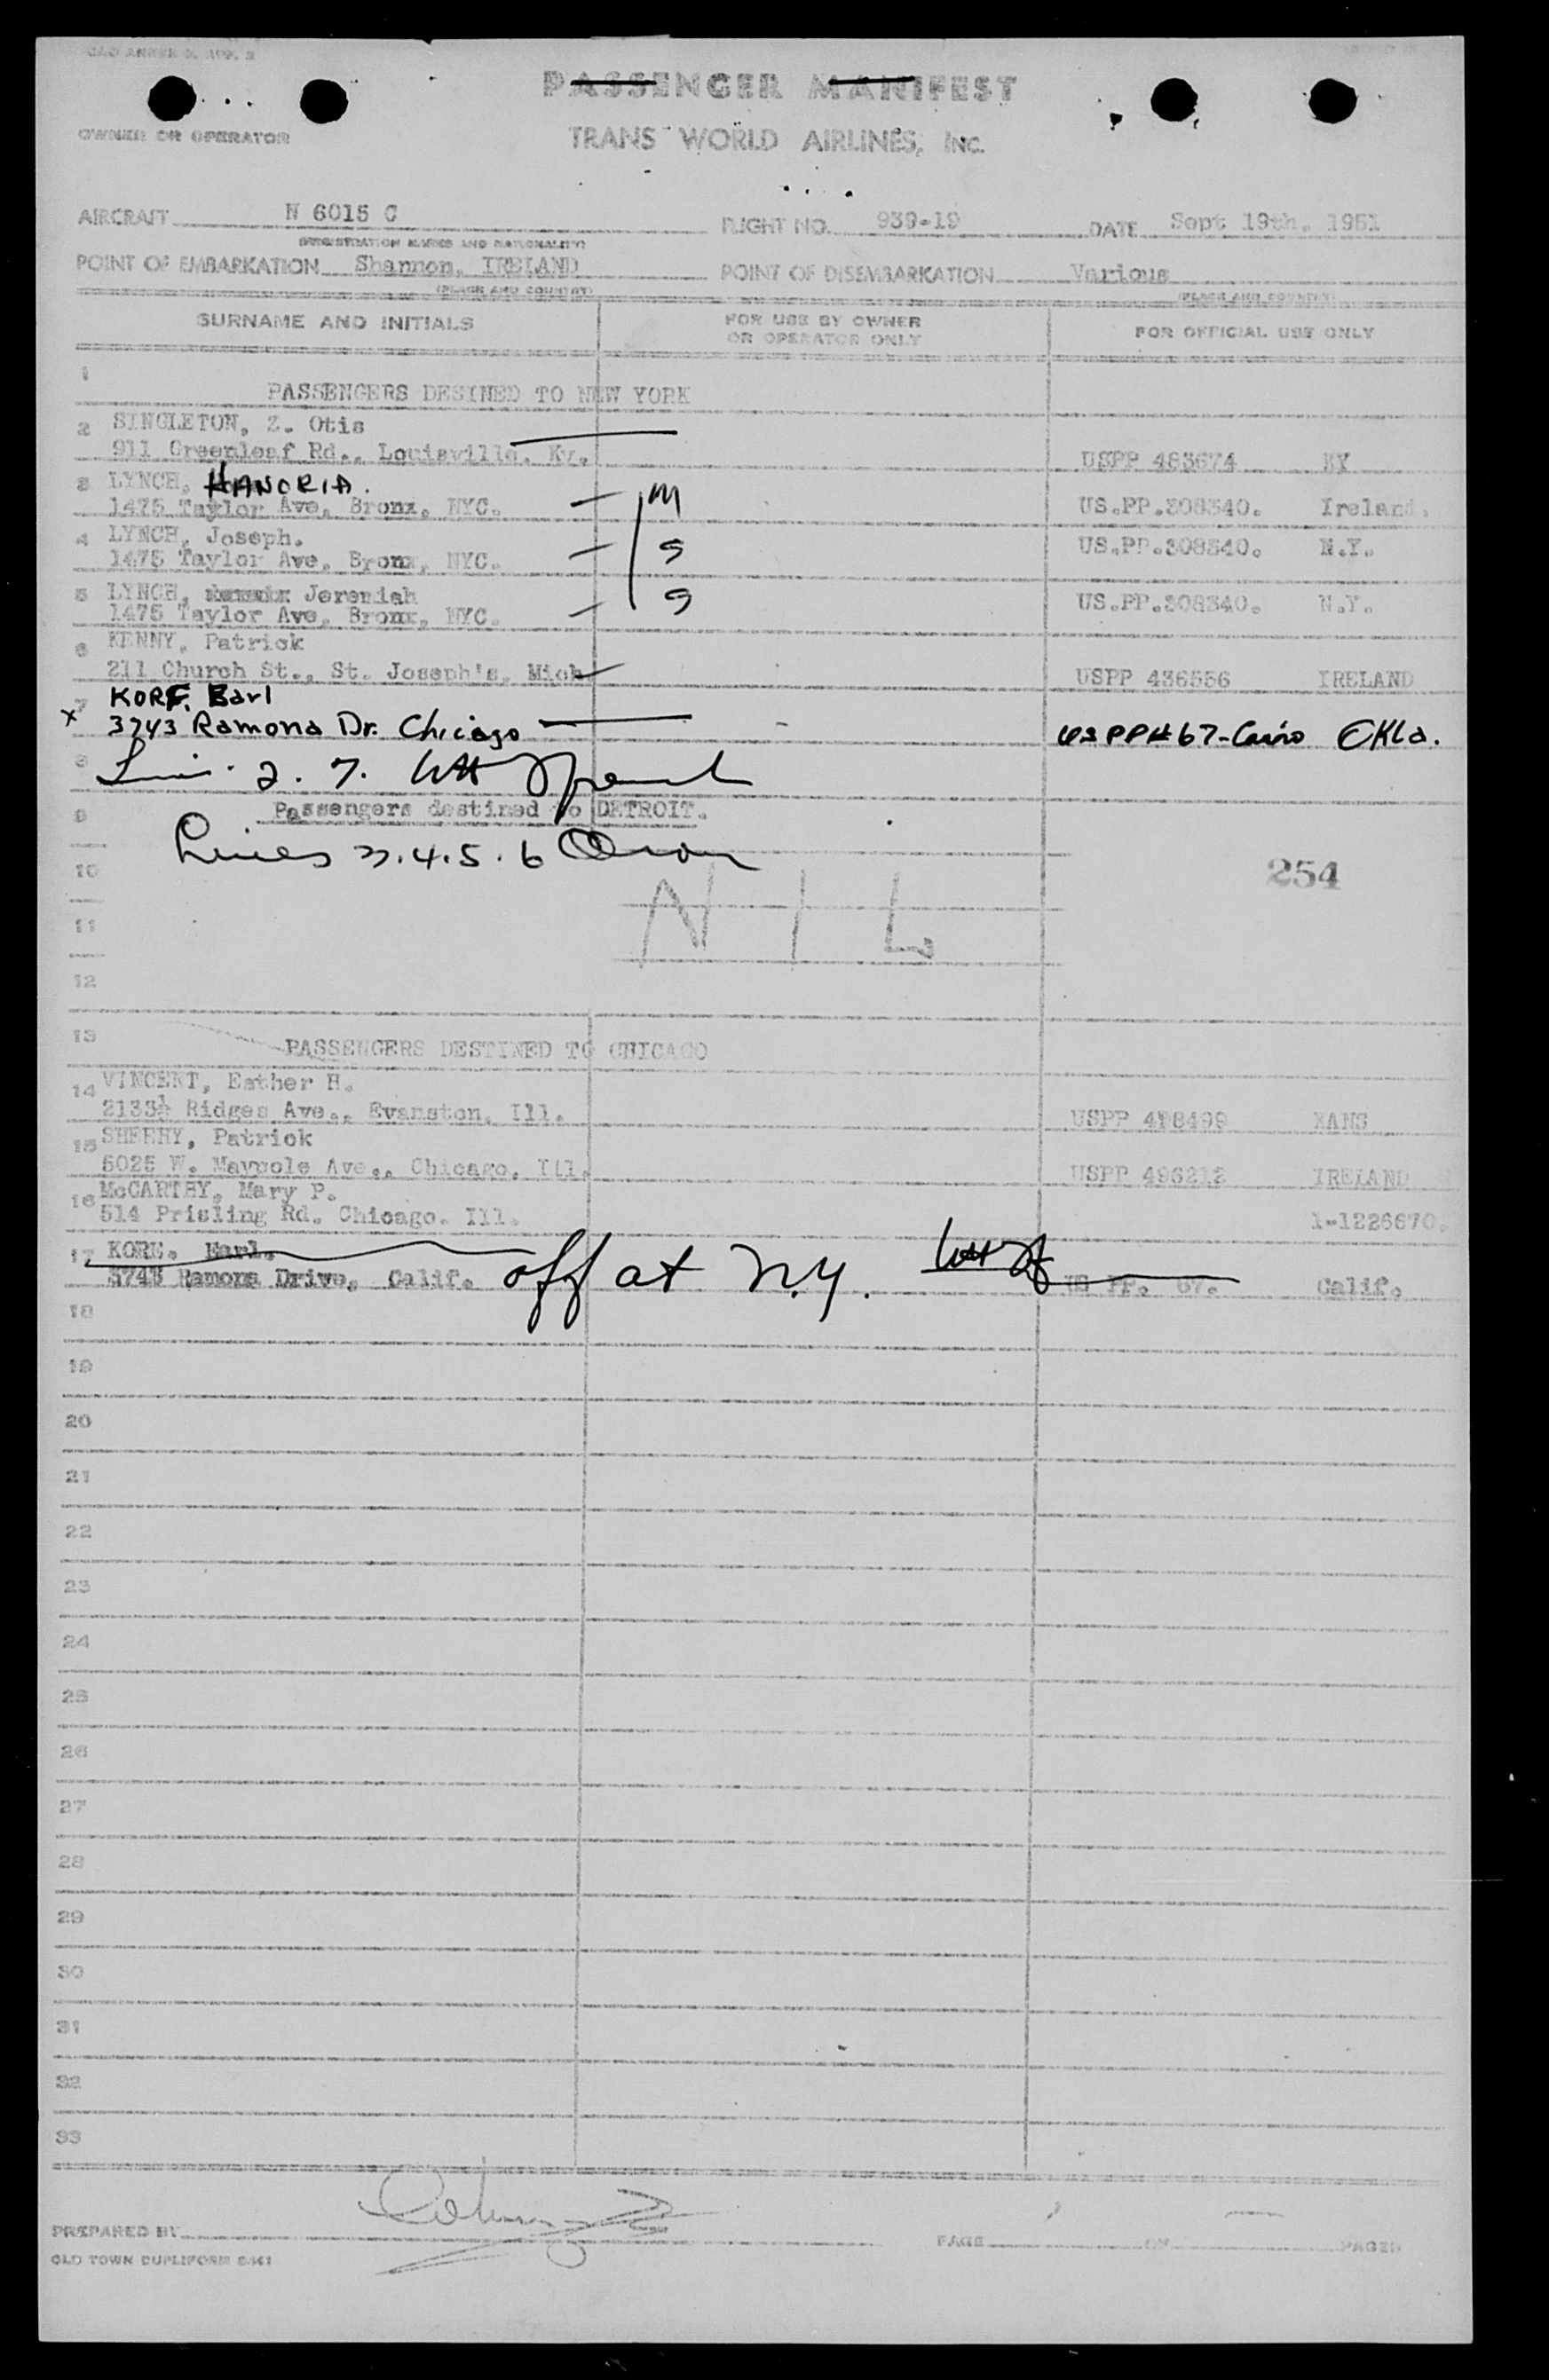 PASSENGER MANIFEST
OWNER OR OPERATOR TRANS WORLD AIRLINES, INC.
AIRCRAFT N 6015 C FLIGHT NO. 939-19 DATE Sept 19th. 1951
(REGISTRATION MARKS AND NATIONALITY)
POINT OF EMBARKATION Shannon, IRELAND POINT OF DISEMBARKATION Various
(PLACE AND COUNTRY) (PLACE AND COUNTRY)
SURNAME AND INITIALS FOR USE BY OWNER OR OPERATOR ONLY FOR OFFICIAL USE ONLY
1 PASSENGERS DESINED TO NEW YORK
2 SINGLETON, Z. Otis
911 Greenleaf Rd., Louisville, Ky. USPP 483674 KY
3 LYNCH, HANORIA.
1475 Taylor Ave, Bronx, NYC. M US.PP.308340. Ireland.
4 LYNCH, Joseph.
1475 Taylor Ave, Bronx, NYC. S US.PP.308340. N.Y.
5 LYNCH, Jeremiah
1475 Taylor Ave, Bronx, NYC. S US.PP.308340. N.Y.
6 KENNY, Patrick
211 Church St., St. Joseph's, Mich USPP 436556 IRELAND
7 KORF. Earl
x 3743 Ramona Dr. Chicago US PP# 67-Cairo Okla.
8 2. 7.
9 Passengers destined to DETROIT.
Lines 3.4.5.6
10 NIL 254
11
12
13 PASSENGERS DESTINED TO CHICAGO
14 VINCENT, Esther H.
2133½ Ridges Ave., Evanston, Ill. USPP 418499 KANS
15 SHEEHY, Patrick
5025 W. Maypole Ave., Chicago, Ill. USPP 496212 IRELAND
16 McCARTHY, Mary P.
514 Prisling Rd. Chicago. Ill. 1-1226670.
17 KORE. Earl.
3743 Ramona Drive, Calif. off at N.Y. US PP. 67. Calif.
18
19
20
21
22
23
24
25
26
27
28
29
30
31
32
33
PREPARED BY PAGE OF PAGES
OLD TOWN DUPLIFORM